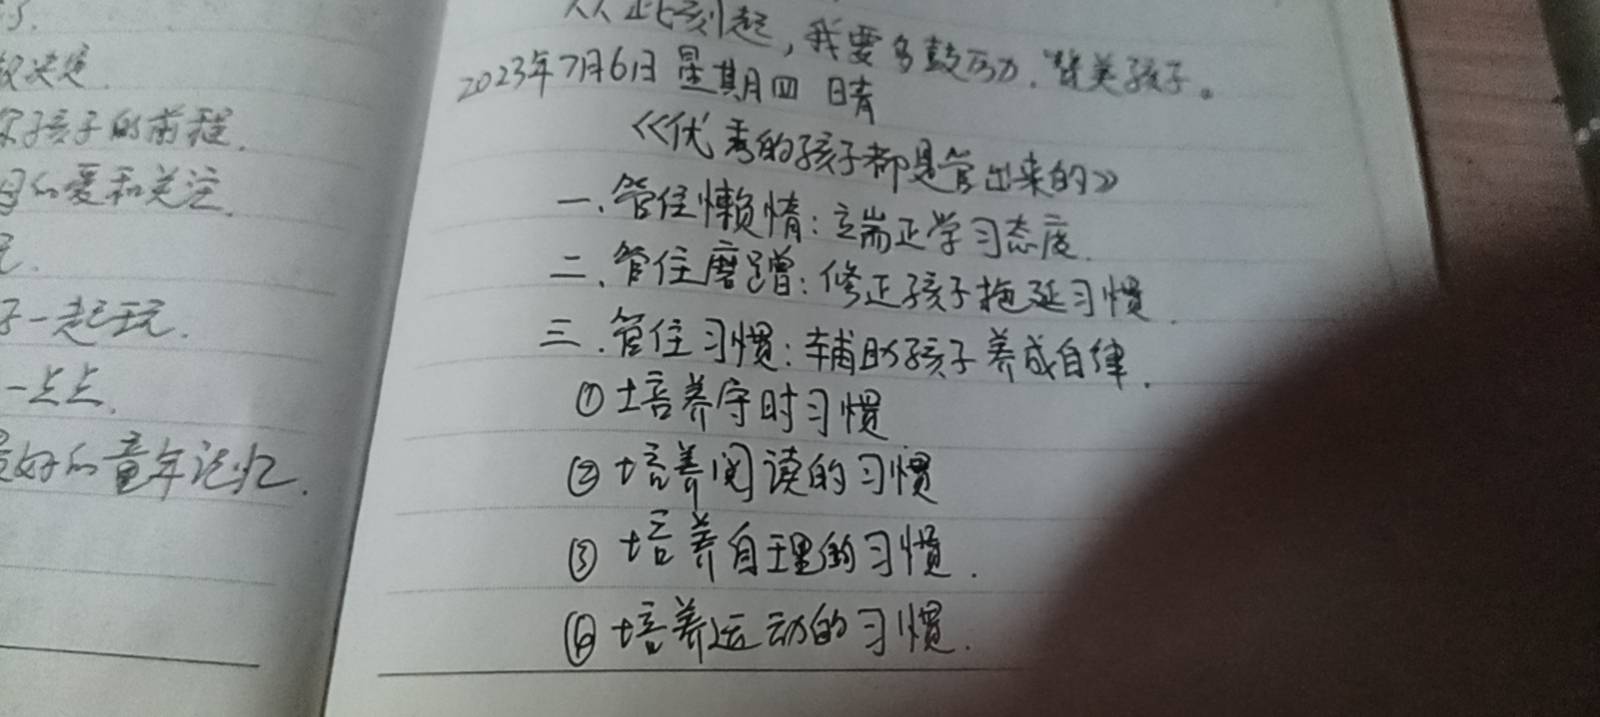 了.
决定.
孩子的前程.
的爱和关注.
子一起玩.
一点点.
好的童年记忆.
从此刻起，我要多鼓励.赞美孩子。
2023年7月6日 星期四 晴
《优秀的孩子都是管出来的》
一、管住懒惰：端正学习态度.
二、管住磨蹭：修正孩子拖延习惯.
三.管住习惯：辅助孩子养成自律.
①培养守时习惯
②培养阅读的习惯
③培养自理的习惯.
④培养运动的习惯.